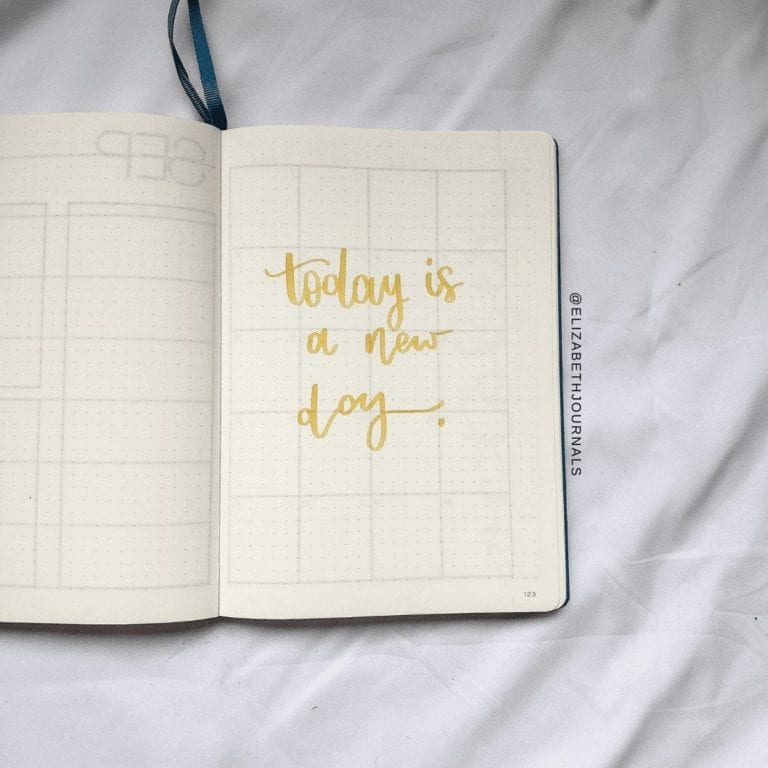 SEP
today is
a new
day.
@ELIZABETHJOURNALS
123